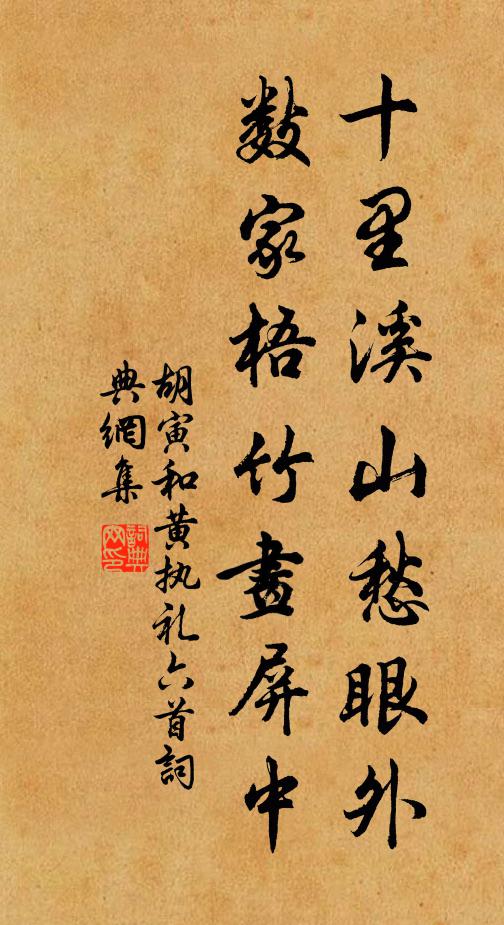 十里溪山愁眼外
数家梧竹畫屏中
胡寅和黄执礼六首詞
典網集
詞典
网印